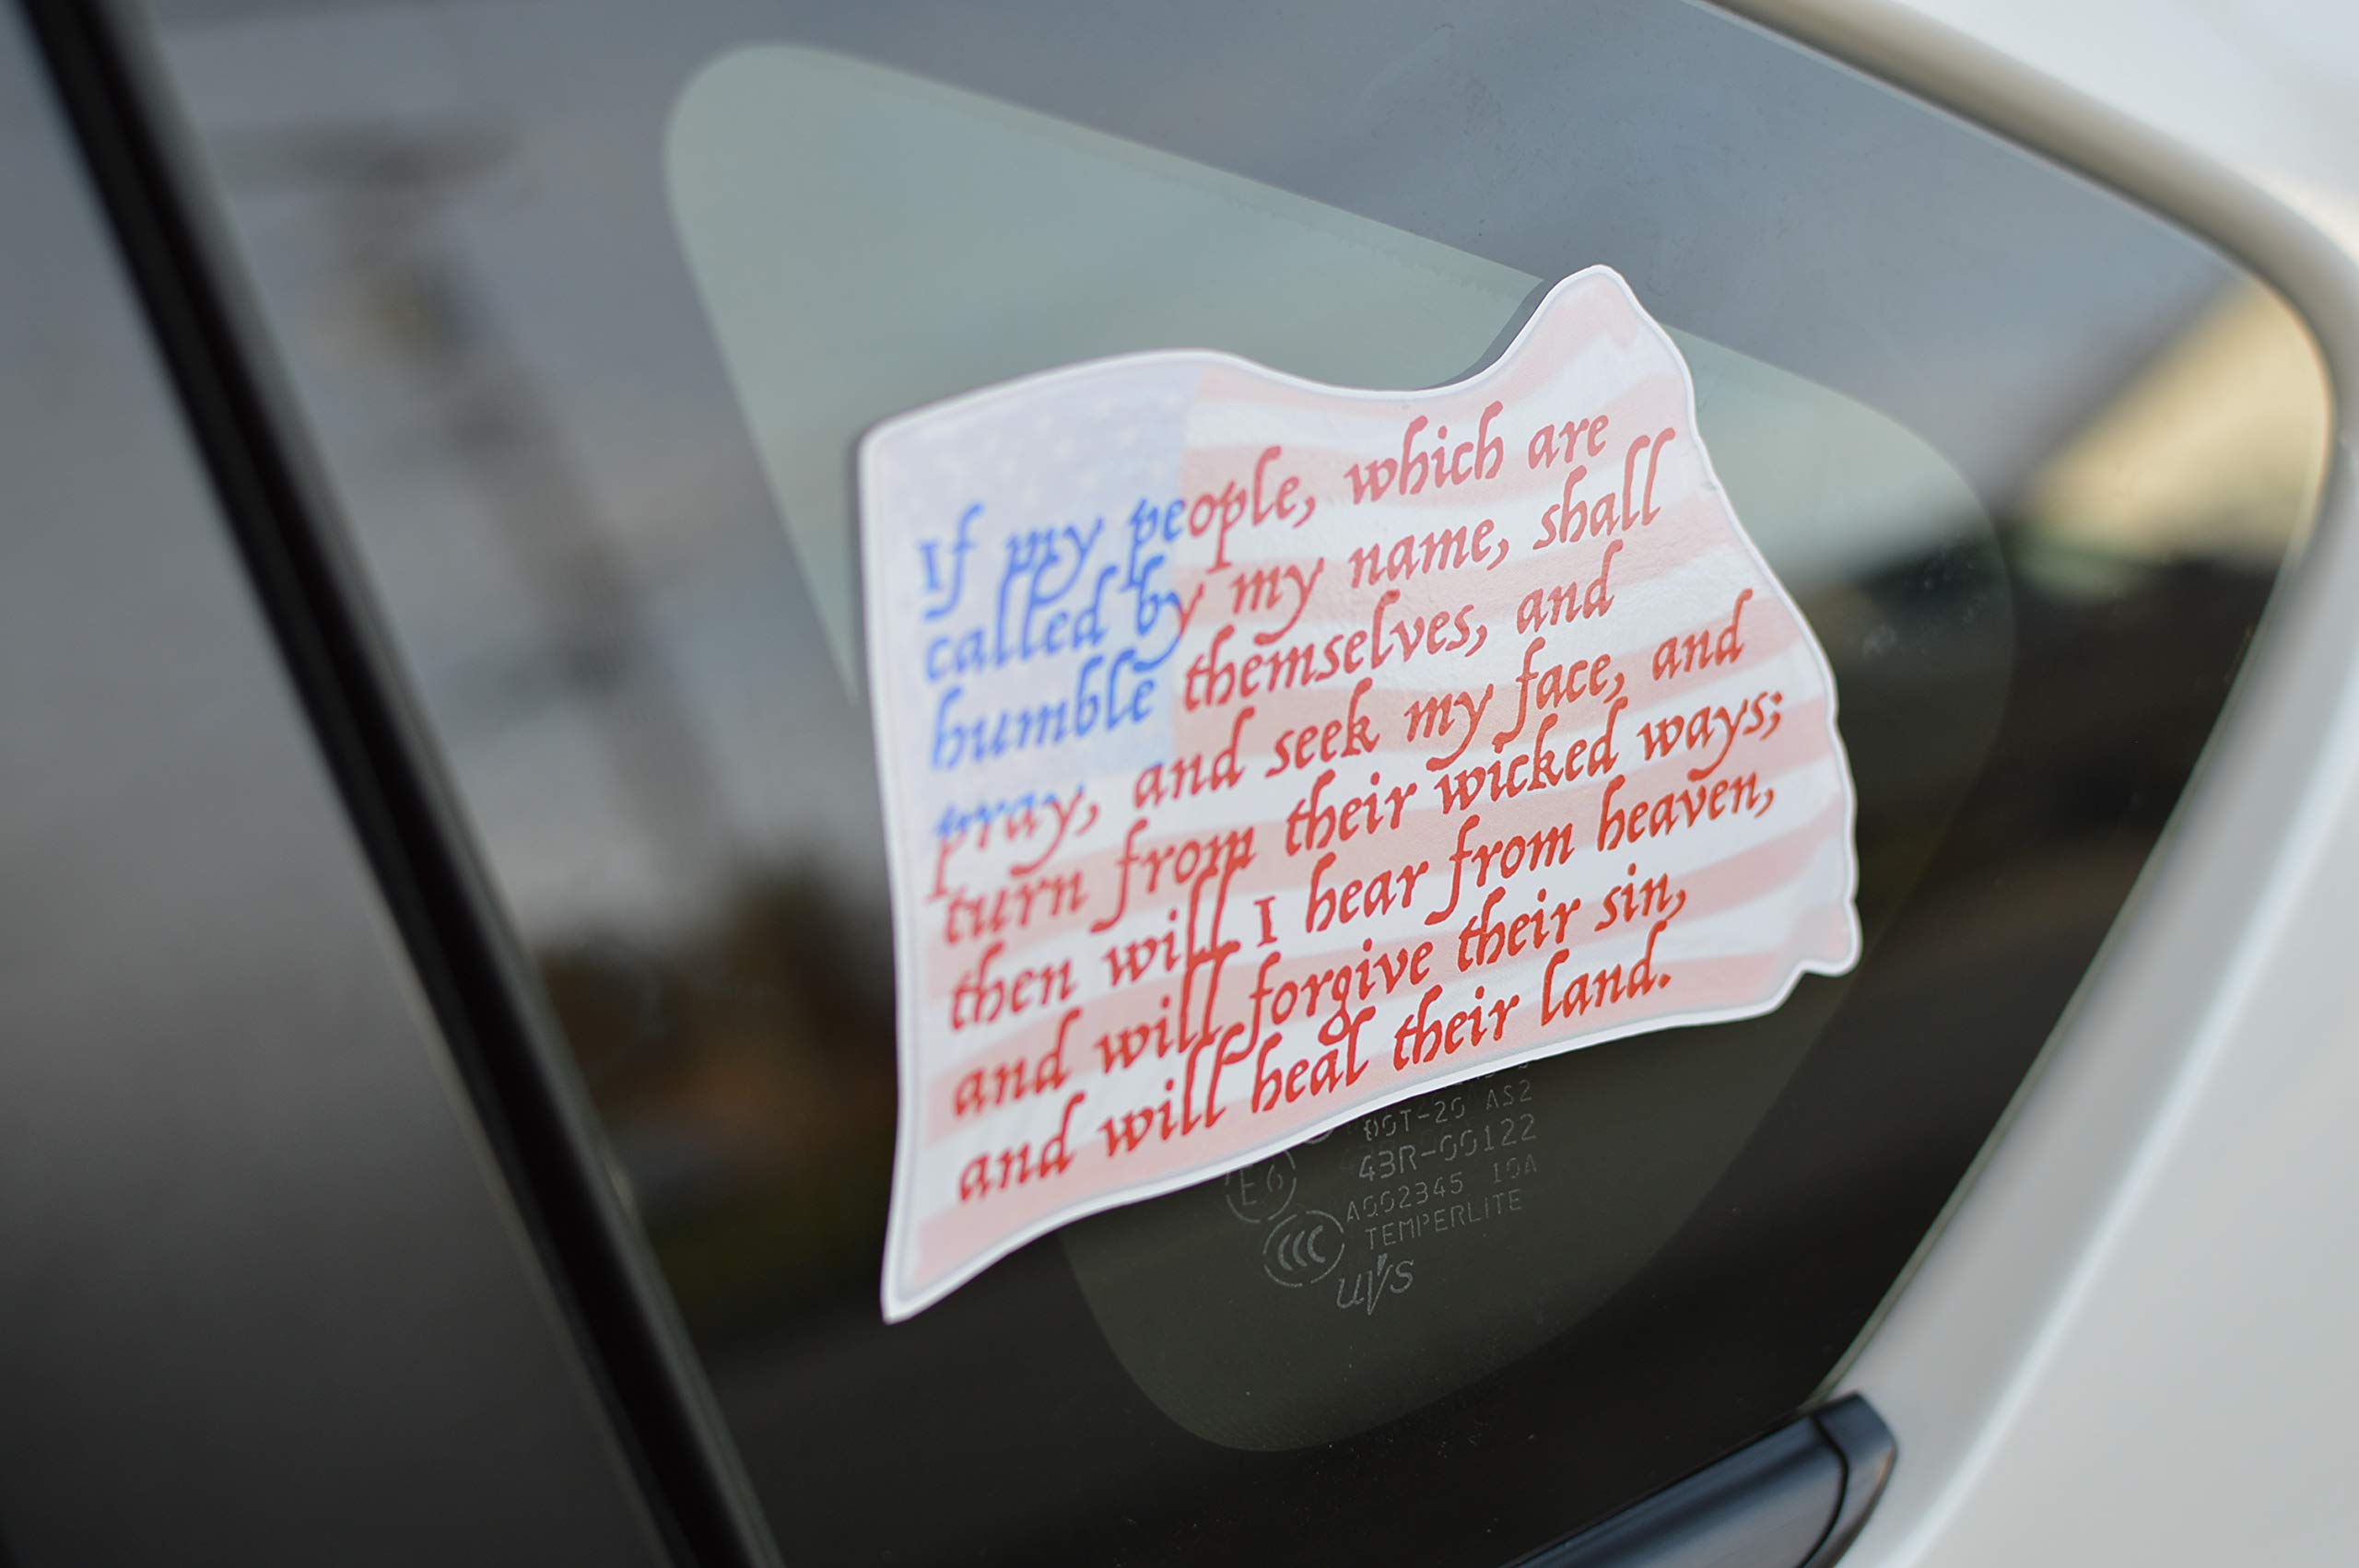 If my people, which are
called by my name, shall
humble themselves, and
pray, and seek my face, and
turn from their wicked ways;
then will I hear from heaven,
and will forgive their sin,
and will heal their land.
DOT-20 AS2
E6 43R-00122
AGO2345 10A
CCC TEMPERLITE
uvs